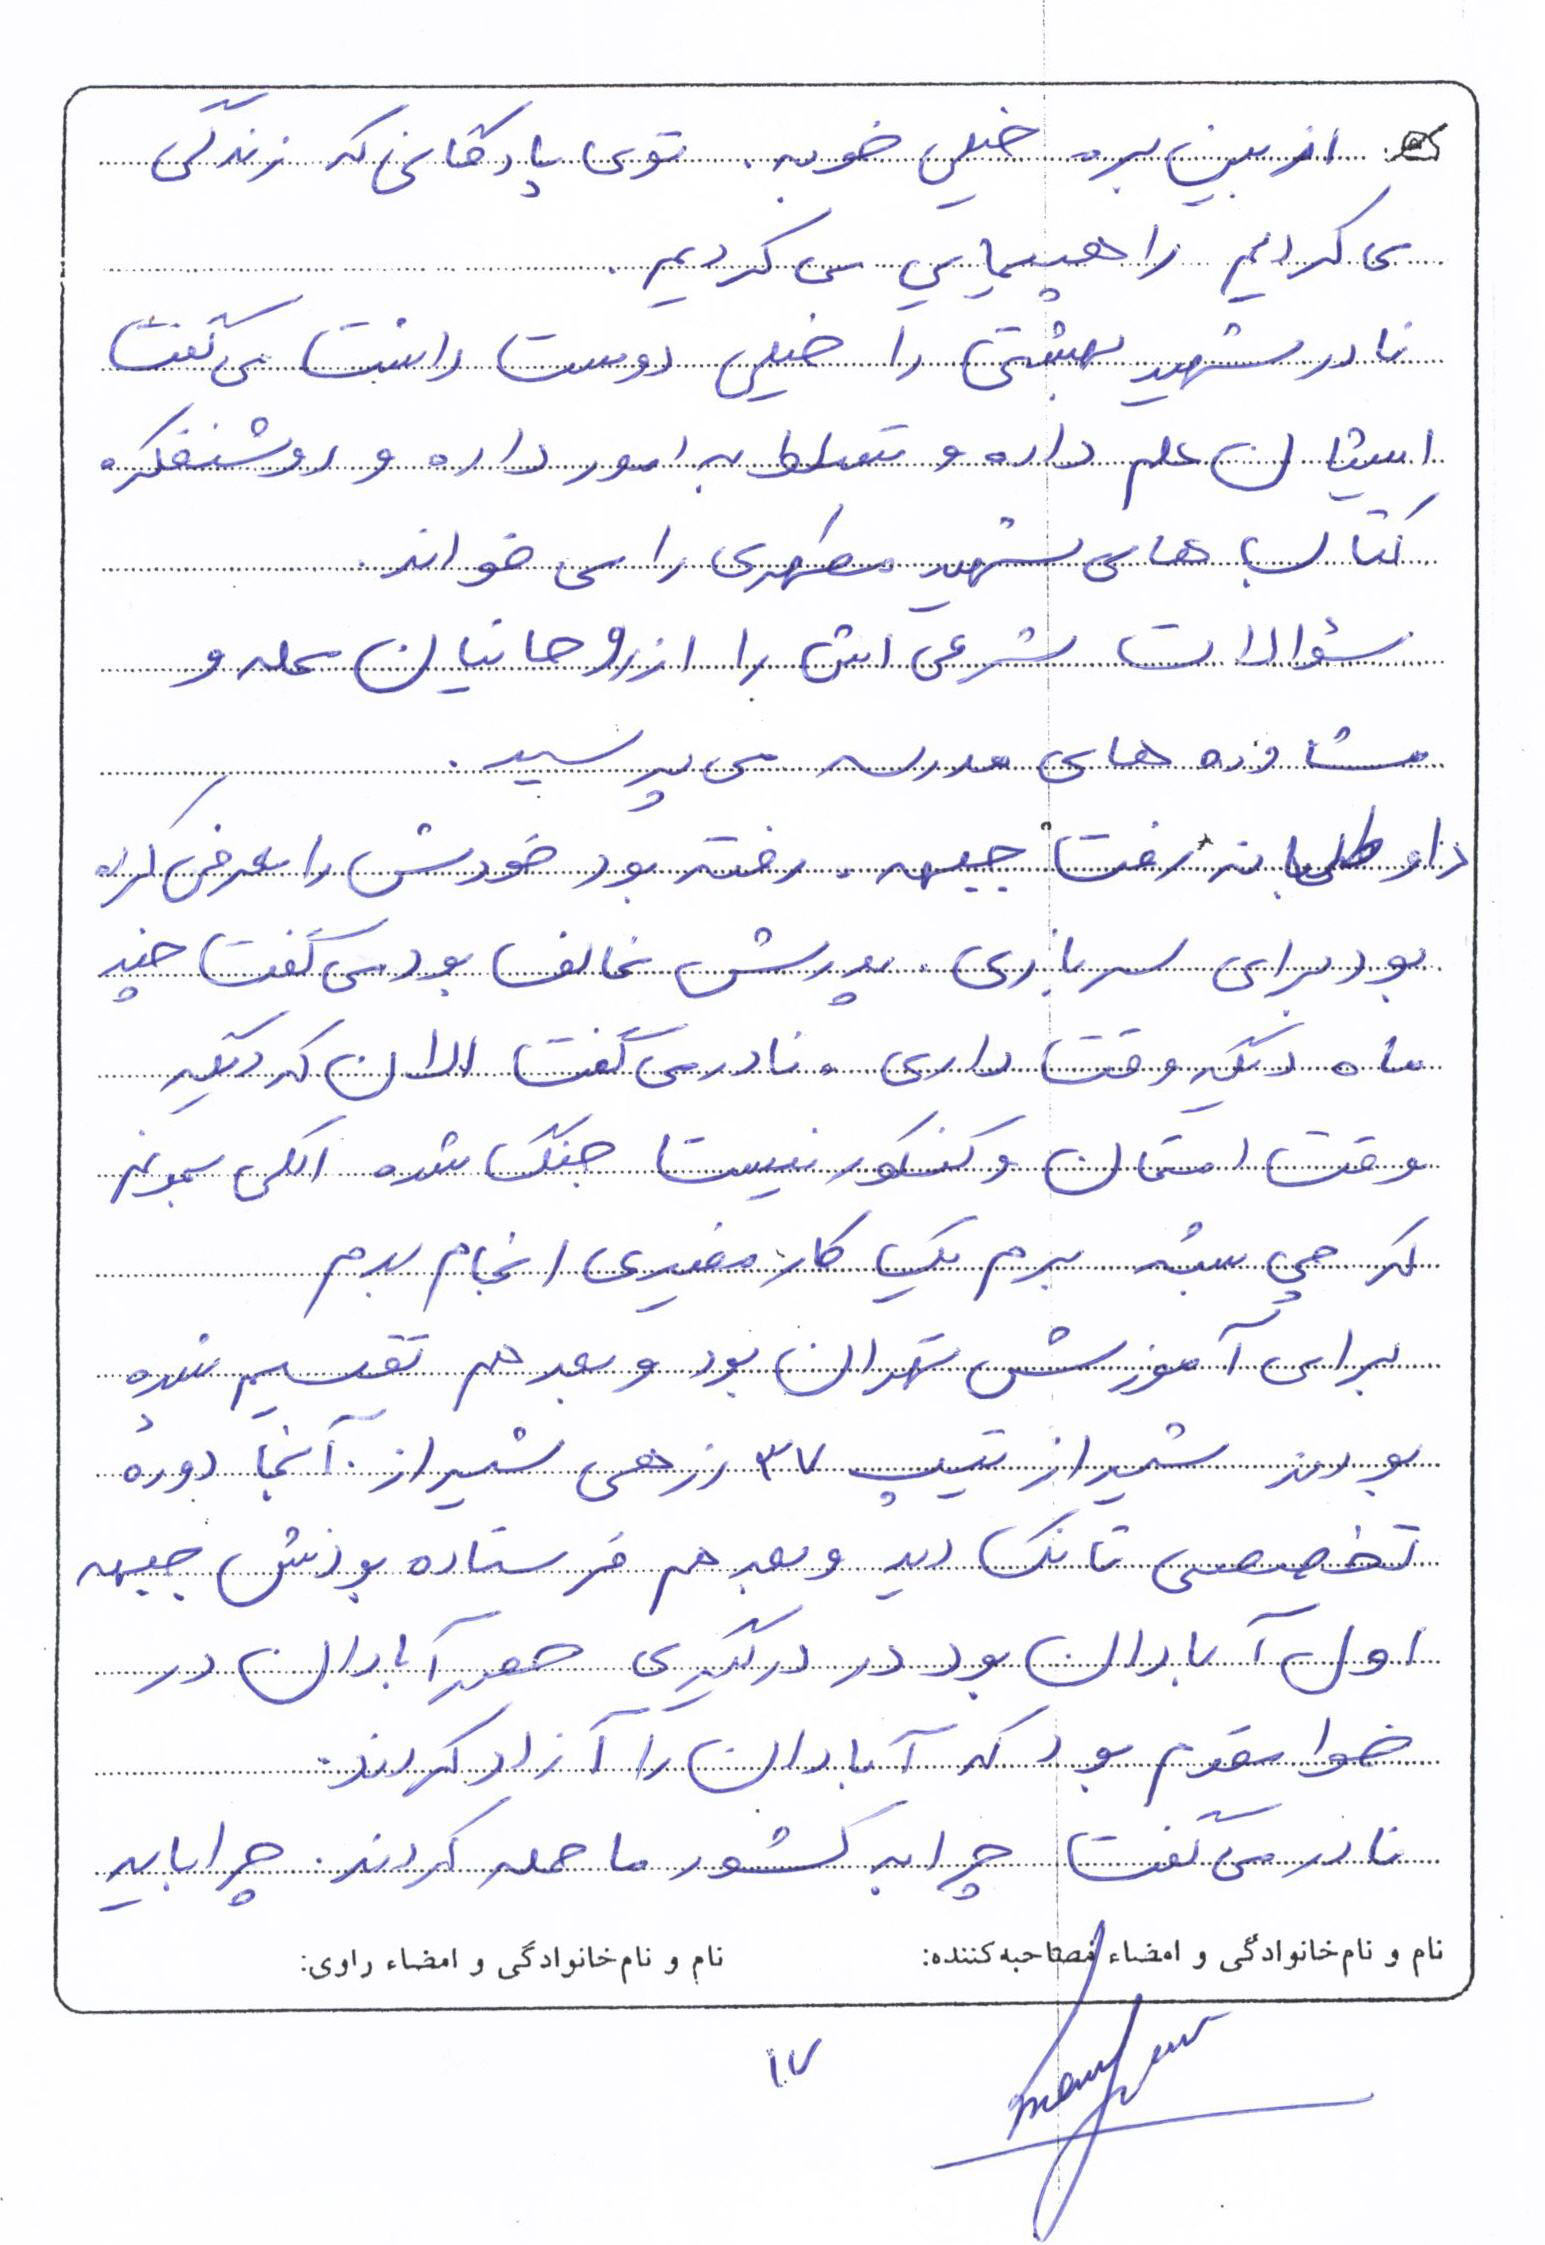 از بین بره خیلی خوبه. توی پادگانی که زندگی
می کردیم راهپیمایی می کردیم.
نادر شهید بهشتی را خیلی دوست داشت می گفت
ایشان علم داره و تسلط به امور داره و روشنفکره
کتاب های شهید مطهری را می خواند.
سؤالات شرعی اش را از روحانیان محله و
مشاوره های مدرسه می پرسید.
داوطلبانه رفت جبهه. رفته بود خودش را معرفی کرده
بود برای سربازی. پدرش مخالف بود می گفت چند
ماه دیگه وقت داری. نادر می گفت الان که دیگه
وقت امتحان و کنکور نیست جنگ شده الکی بمونم
که چی بشه برم یک کار مفیدی انجام بدم
برای آموزش تهران بود و بعد هم تقسیم شده
بودند شیراز تیپ ۳۷ زرهی شیراز. آنجا دورهٔ
تخصصی تانک دید و بعد هم فرستاده بودنش جبهه
اول آبادان بود در درگیری حصر آبادان در
خط مقدم بود که آبادان را آزاد کردند.
نادر می گفت چرا به کشور ما حمله کردند. چرا باید
نام و نام خانوادگی و امضاء مصاحبه کننده: نام و نام خانوادگی و امضاء راوی:
۱۷